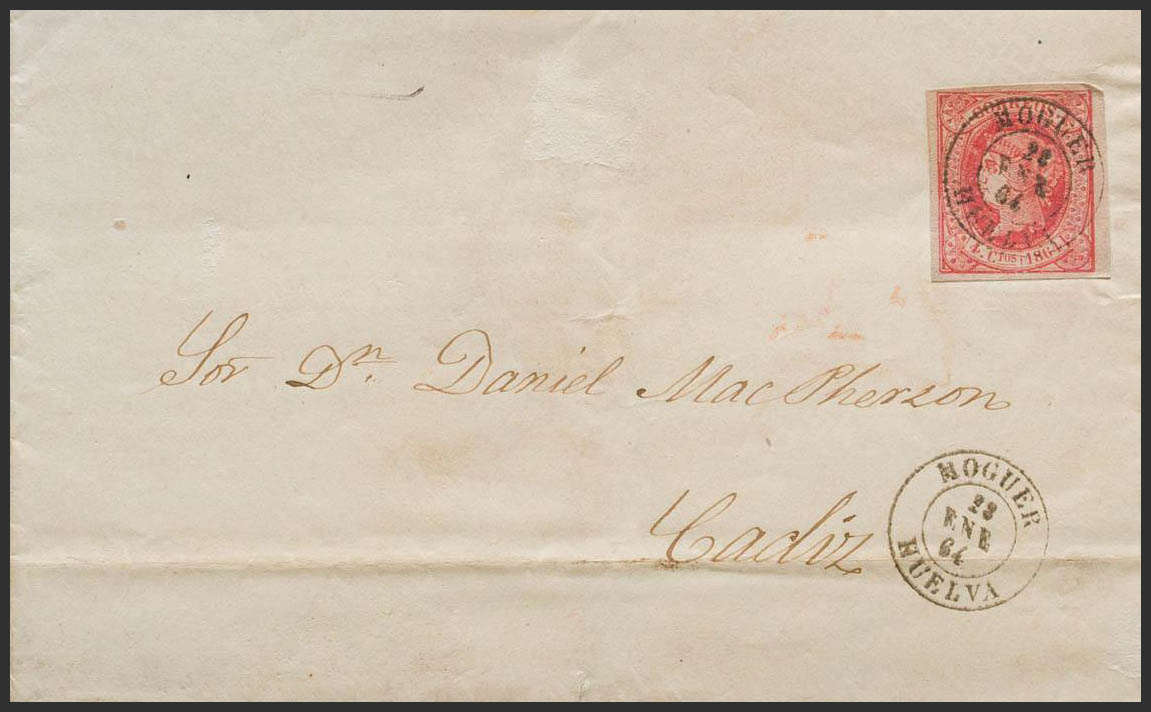 CORREOS
MOGUER
28
ENE
64
HUELVA
4. CTOS 1864
Sor Dn. Daniel MacPherson
Cadiz
MOGUER
28
ENE
64
HUELVA